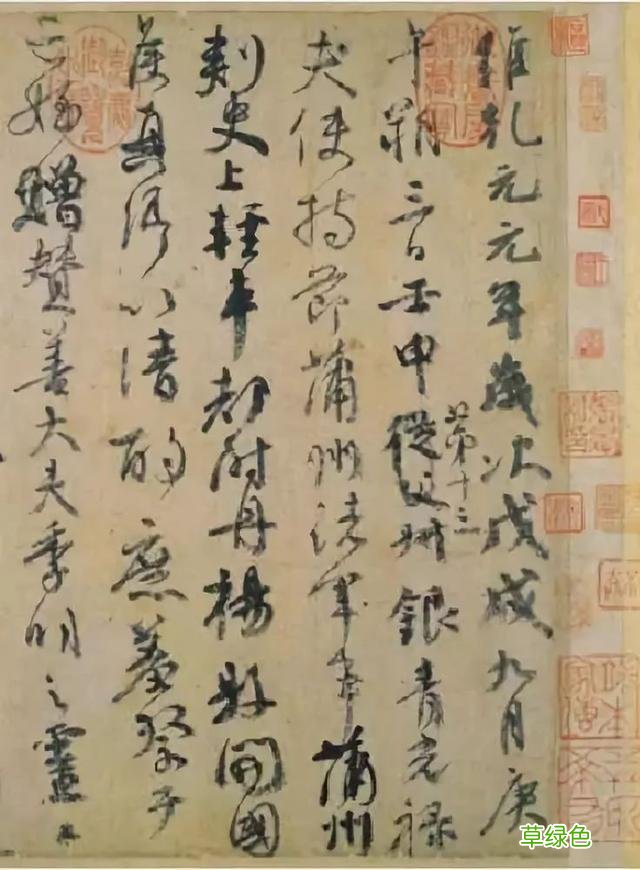 維乾元元年歲次戊戌九月庚
午朔三日壬申第十三從父叔銀青光祿
夫使持節蒲州諸軍事蒲州
刺史上輕車都尉丹楊縣開國
侯真卿以清酌庶羞祭于
亡姪贈贊善大夫季明之靈曰
草绿色